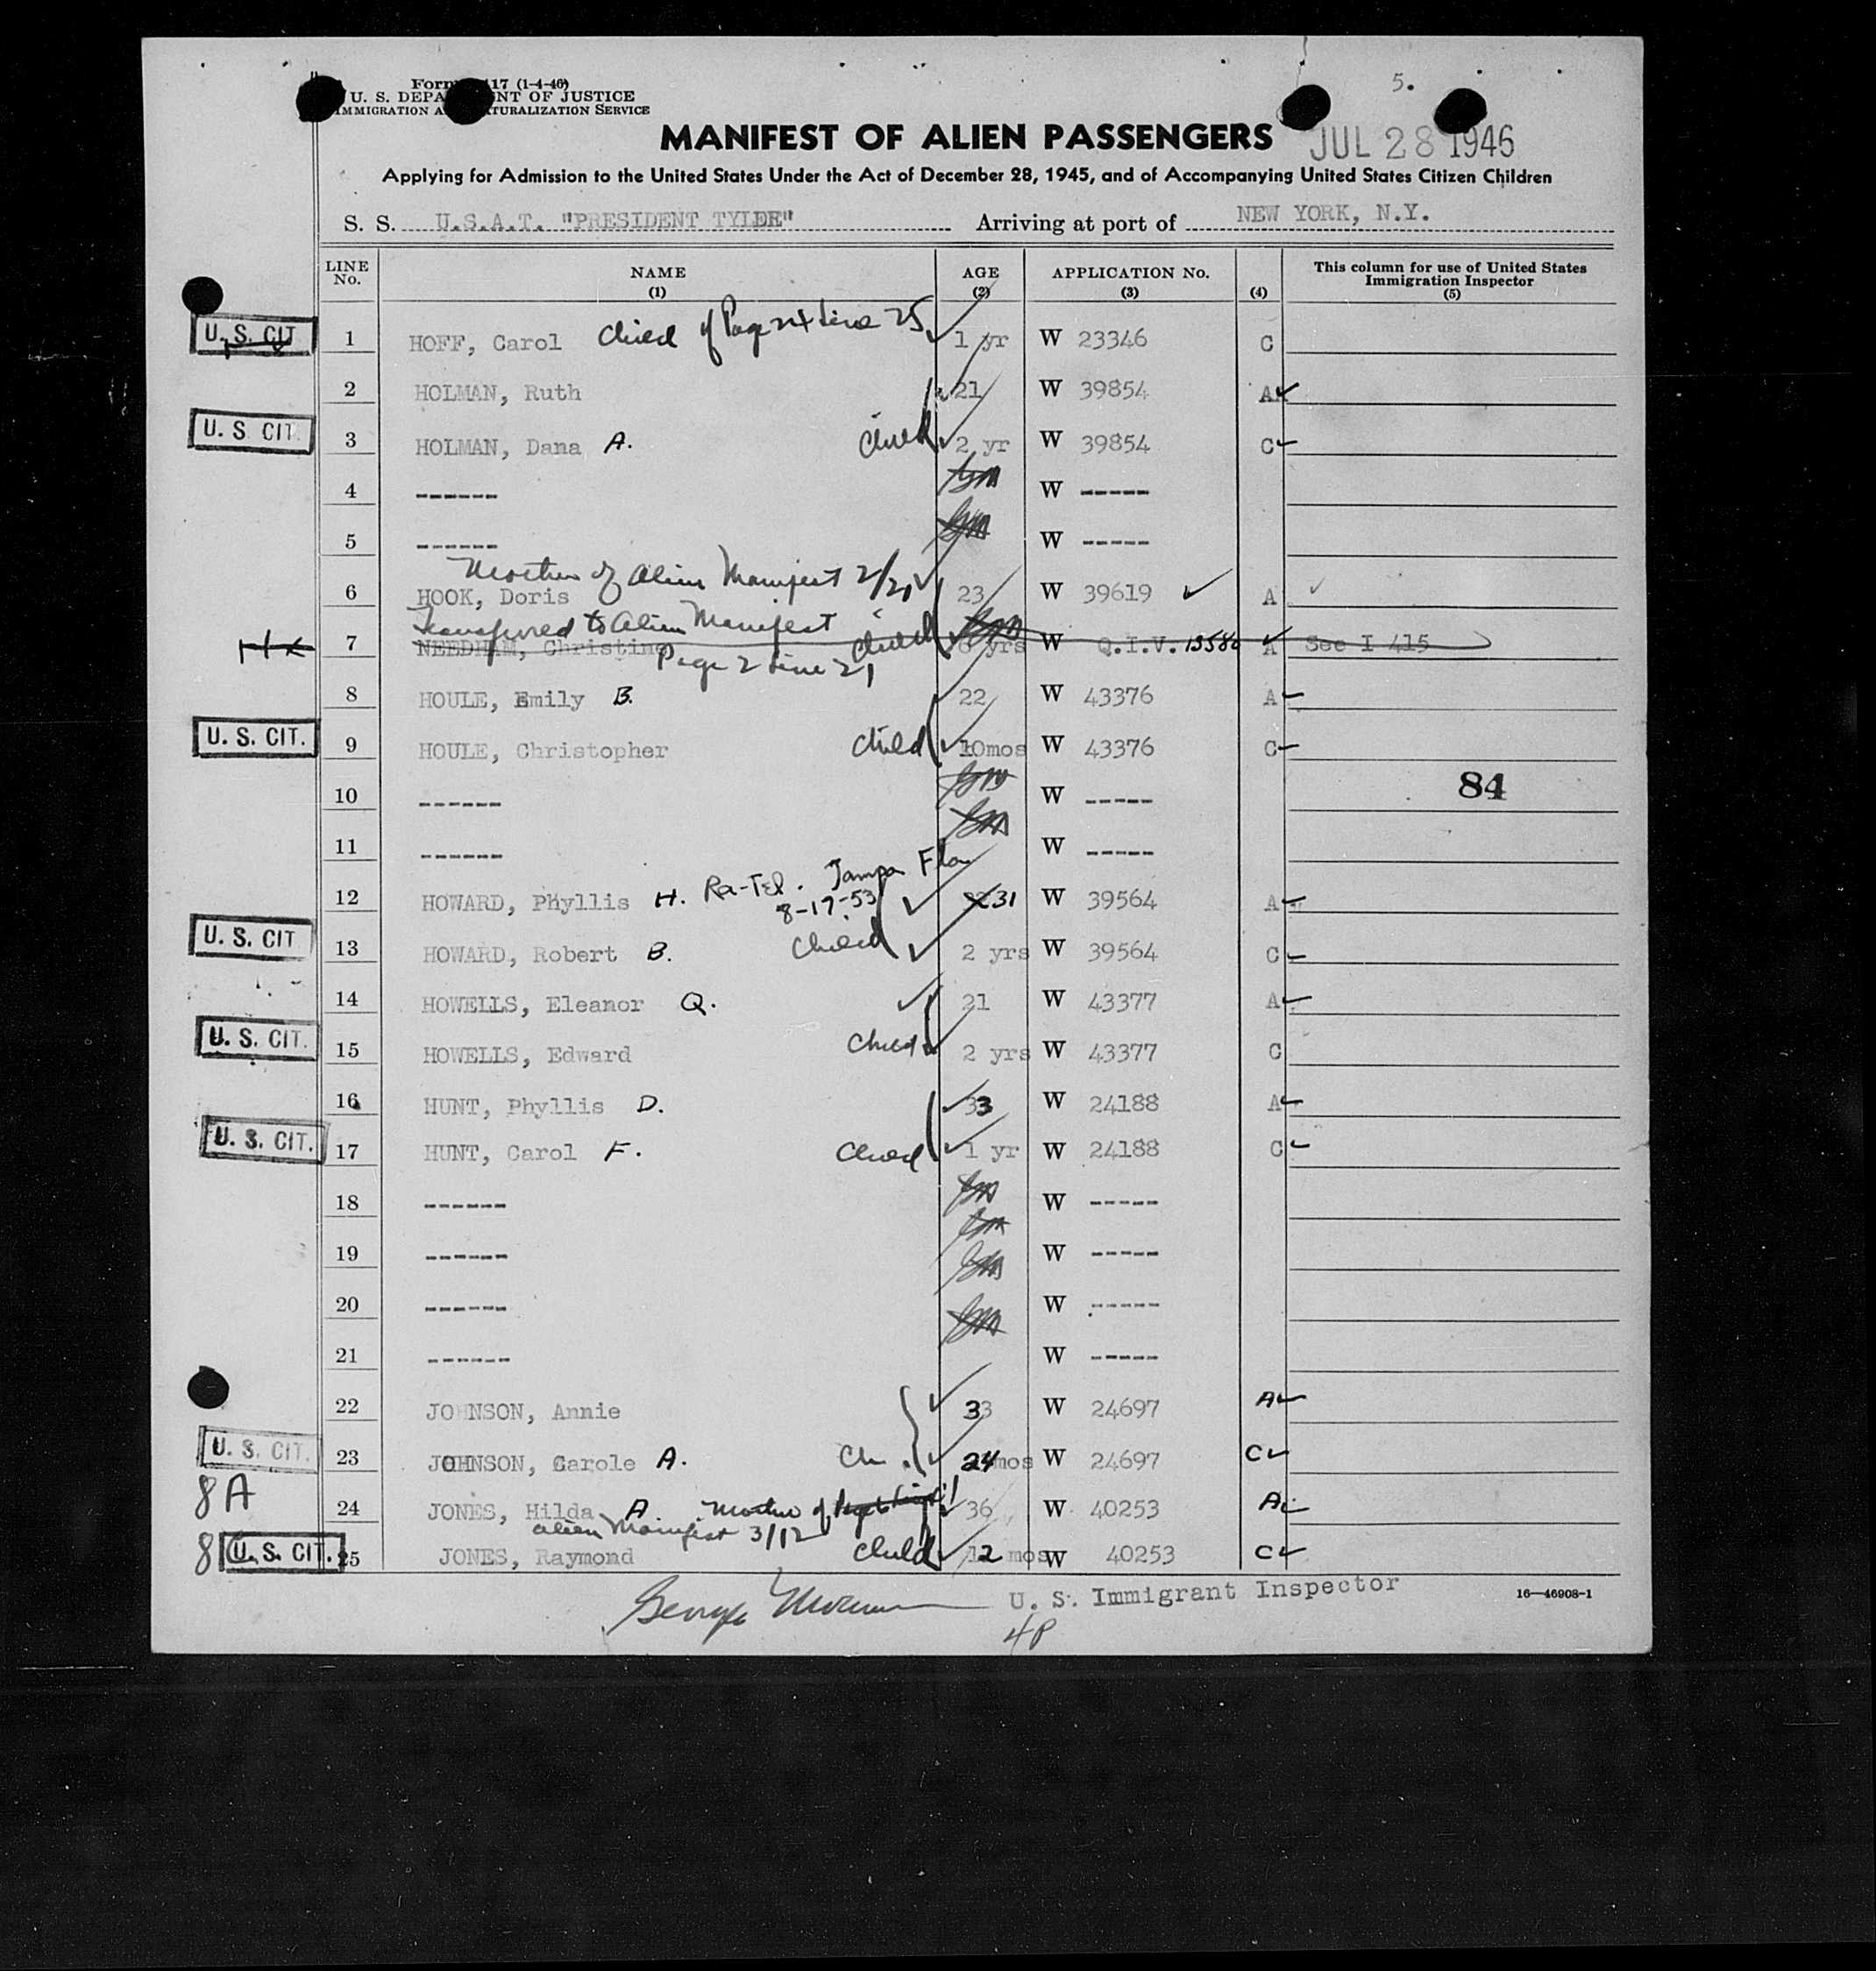 5.
Form 17 (1-4-46)
U. S. DEPA NT OF JUSTICE
IMMIGRATION A TURALIZATION SERVICE
MANIFEST OF ALIEN PASSENGERS JUL 28 1946
Applying for Admission to the United States Under the Act of December 28, 1945, and of Accompanying United States Citizen Children
S. S. U.S.A.T. "PRESIDENT TYLER" Arriving at port of NEW YORK, N.Y.
LINE No. NAME (1) AGE (2) APPLICATION No. (3) (4) This column for use of United States Immigration Inspector (5)
U. S. CIT 1 HOFF, Carol Child of Page Line 25 1 yr W 23346 C
2 HOLMAN, Ruth 21 W 39854 A
U. S CIT. 3 HOLMAN, Dana A. Child 2 yr W 39854 C
4 ------ W -----
5 ------ W -----
Mother of Alien Manifest 2/21
6 HOOK, Doris 23 W 39619 A
Transferred to Alien Manifest
7 NEEDHAM, Christine Child 6 yrs W Q.I.V. 13580 A See I 415
Page 2 Line 21
8 HOULE, Emily B. 22 W 43376 A
U. S. CIT. 9 HOULE, Christopher Child 10mos W 43376 C
84
10 ------ W -----
11 ------ W -----
12 HOWARD, Phyllis H. Ra-Tel. Tampa Fla 8-17-53 31 W 39564 A
U. S. CIT 13 HOWARD, Robert B. Child 2 yrs W 39564 C
14 HOWELLS, Eleanor Q. 21 W 43377 A
U. S. CIT. 15 HOWELLS, Edward Child 2 yrs W 43377 C
16 HUNT, Phyllis D. 33 W 24188 A
U. S. CIT. 17 HUNT, Carol F. Child 1 yr W 24188 C
18 ------ W -----
19 ------ W -----
20 ------ W -----
21 ------ W -----
22 JOHNSON, Annie 33 W 24697 A
U. S. CIT. 23 JOHNSON, Carole A. Ch. 24mos W 24697 C
8A 24 JONES, Hilda A Mother of 36 W 40253 A
Alien Manifest 3/12
8 U. S. CIT. 25 JONES, Raymond Child 12 mos W 40253 C
George U. S. Immigrant Inspector 16—46908-1
4P